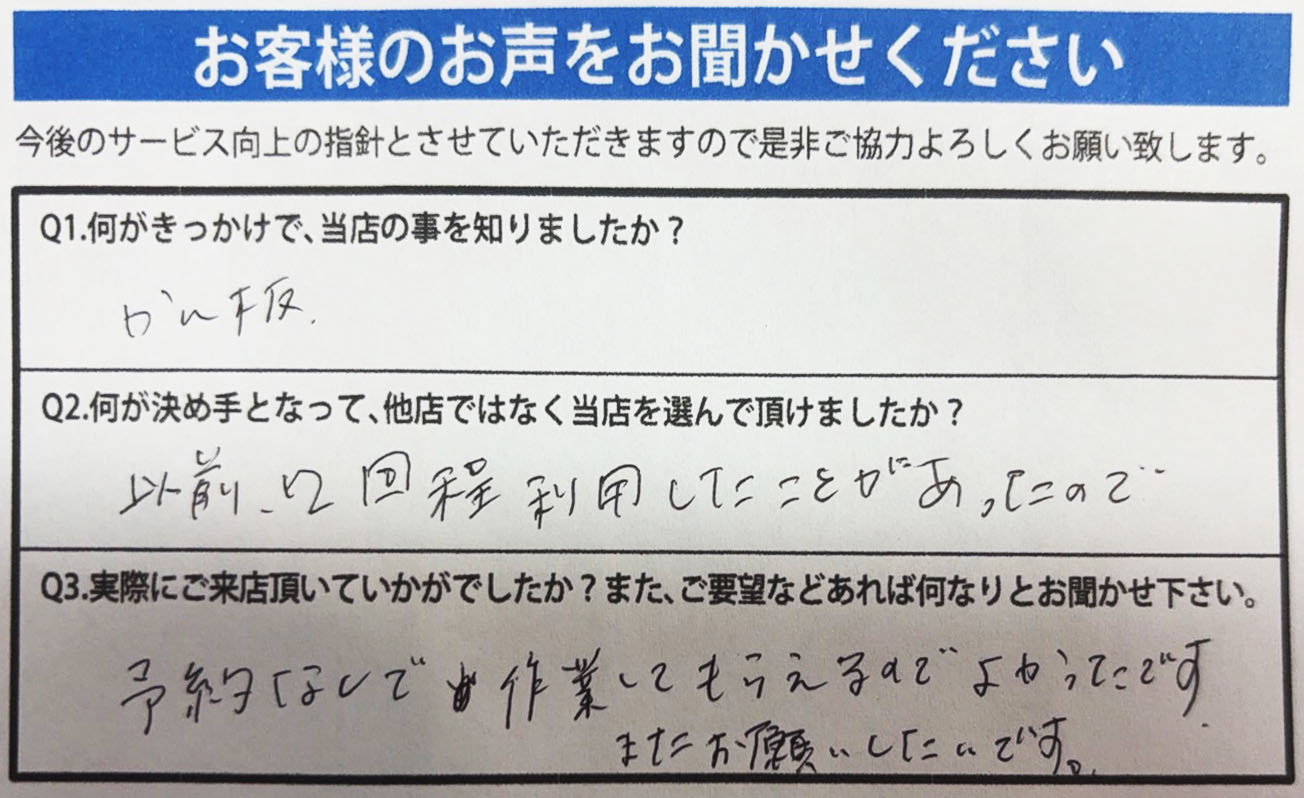 お客様のお声をお聞かせください
今後のサービス向上の指針とさせていただきますので是非ご協力よろしくお願い致します。
Q1.何がきっかけで、当店の事を知りましたか？
かん板.
Q2.何が決め手となって、他店ではなく当店を選んで頂けましたか？
以前、2回程利用したことがあったので
Q3.実際にご来店頂いていかがでしたか？また、ご要望などあれば何なりとお聞かせ下さい。
予約なしで作業してもらえるのでよかったです.
またお願いしたいです。